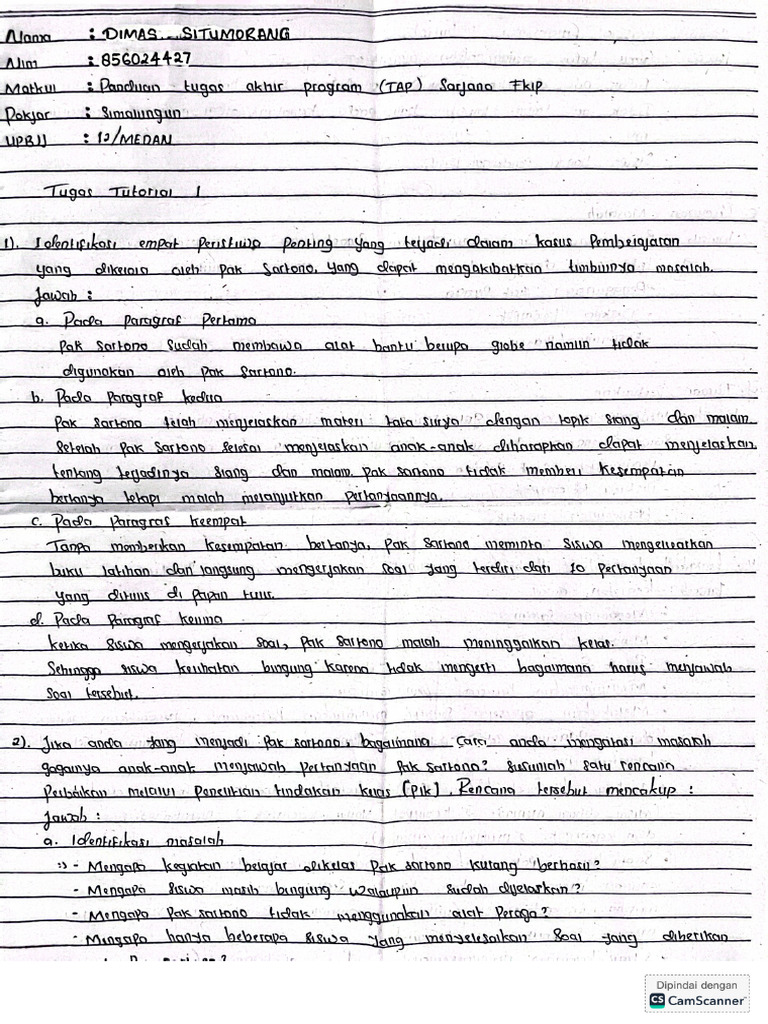 Nama : DIMAS SITUMORANG
Nim : 856024427
Matkul : Panduan tugas akhir program (TAP) Sarjana Fkip
Pokjar : Simalungun
UPBJJ : 12/MEDAN
Tugas Tutorial 1
1). Identifikasi empat peristiwa penting yang terjadi dalam kasus Pembelajaran
yang dikelola oleh Pak Sartono, yang dapat mengakibatkan timbulnya masalah.
Jawab :
a. Pada Paragraf Pertama
Pak Sartono sudah membawa alat bantu berupa globe namun tidak
digunakan oleh Pak Sartono.
b. Pada Paragraf kedua
Pak Sartono telah menjelaskan materi tata surya dengan topik siang dan malam.
Setelah Pak Sartono selesai menjelaskan anak-anak diharapkan dapat menjelaskan
tentang terjadinya siang dan malam, Pak Sartono tidak memberi kesempatan
bertanya tetapi malah melanjutkan Pertanyaannya.
c. Pada Paragraf keempat
Tanpa memberikan kesempatan bertanya, Pak Sartono meminta siswa mengeluarkan
buku latihan dan langsung mengerjakan soal yang terdiri dari 10 Pertanyaan
yang ditulis di Papan tulis.
d. Pada Paragraf kelima
ketika siswa mengerjakan soal, Pak Sartono malah meninggalkan kelas.
Sehingga siswa kelihatan bingung karena tidak mengerti bagaimana harus menjawab
soal tersebut.
2). Jika anda yang menjadi Pak Sartono, bagaimana cara anda mengatasi masalah
gagalnya anak-anak menjawab Pertanyaan Pak Sartono? Susunlah satu rencana
Perbaikan melalui Penelitian tindakan kelas (Ptk). Rencana tersebut mencakup :
Jawab :
a. Identifikasi masalah
:) - Mengapa kegiatan belajar dikelas Pak Sartono kurang berhasil?
- Mengapa siswa masih bingung walaupun sudah dijelaskan?
- Mengapa Pak Sartono tidak menggunakan alat Peraga?
- Mengapa hanya beberapa siswa yang menyelesaikan soal yang diberikan
Dipindai dengan
CS CamScanner